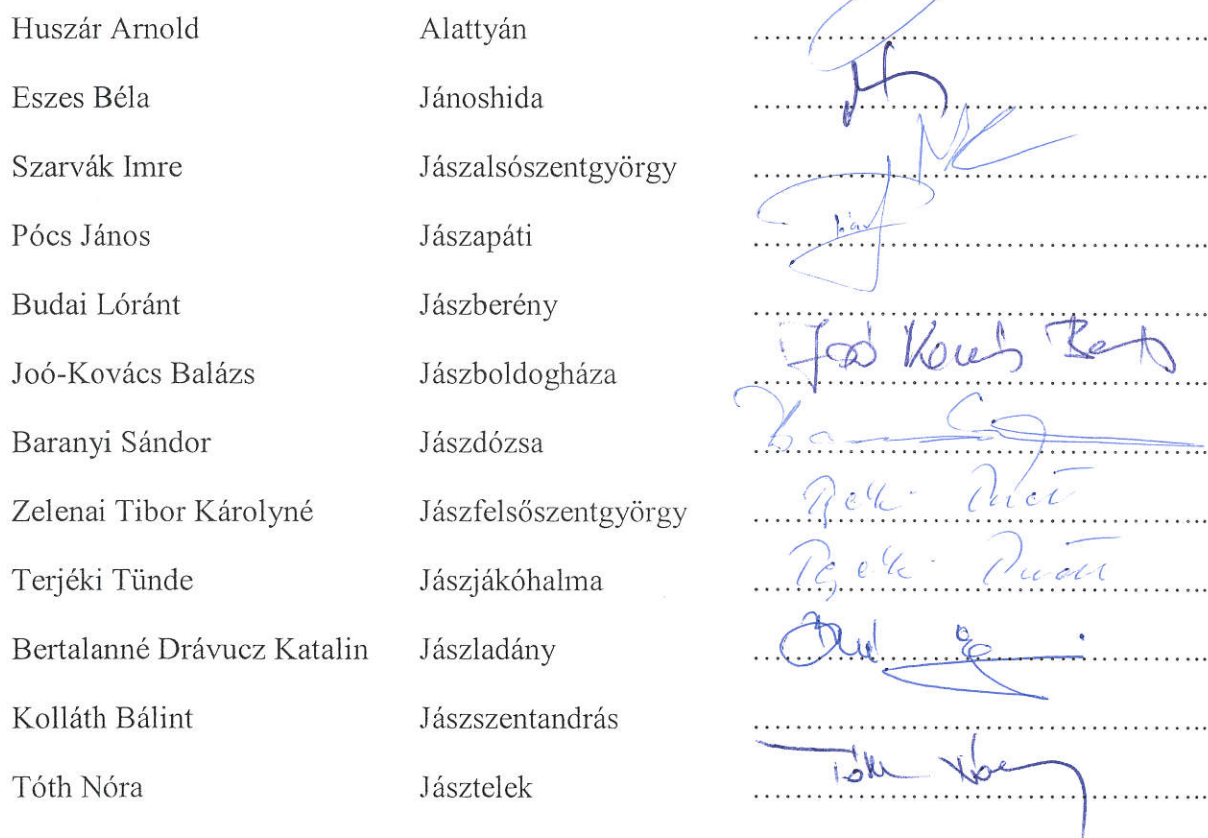 Huszár Arnold Alattyán
Eszes Béla Jánoshida
Szarvák Imre Jászalsószentgyörgy
Pócs János Jászapáti
Budai Lóránt Jászberény
Joó-Kovács Balázs Jászboldogháza Joó Kovács
Baranyi Sándor Jászdózsa
Zelenai Tibor Károlyné Jászfelsőszentgyörgy
Terjéki Tünde Jászjákóhalma
Bertalanné Drávucz Katalin Jászladány
Kolláth Bálint Jászszentandrás
Tóth Nóra Jásztelek Tóth Nóra